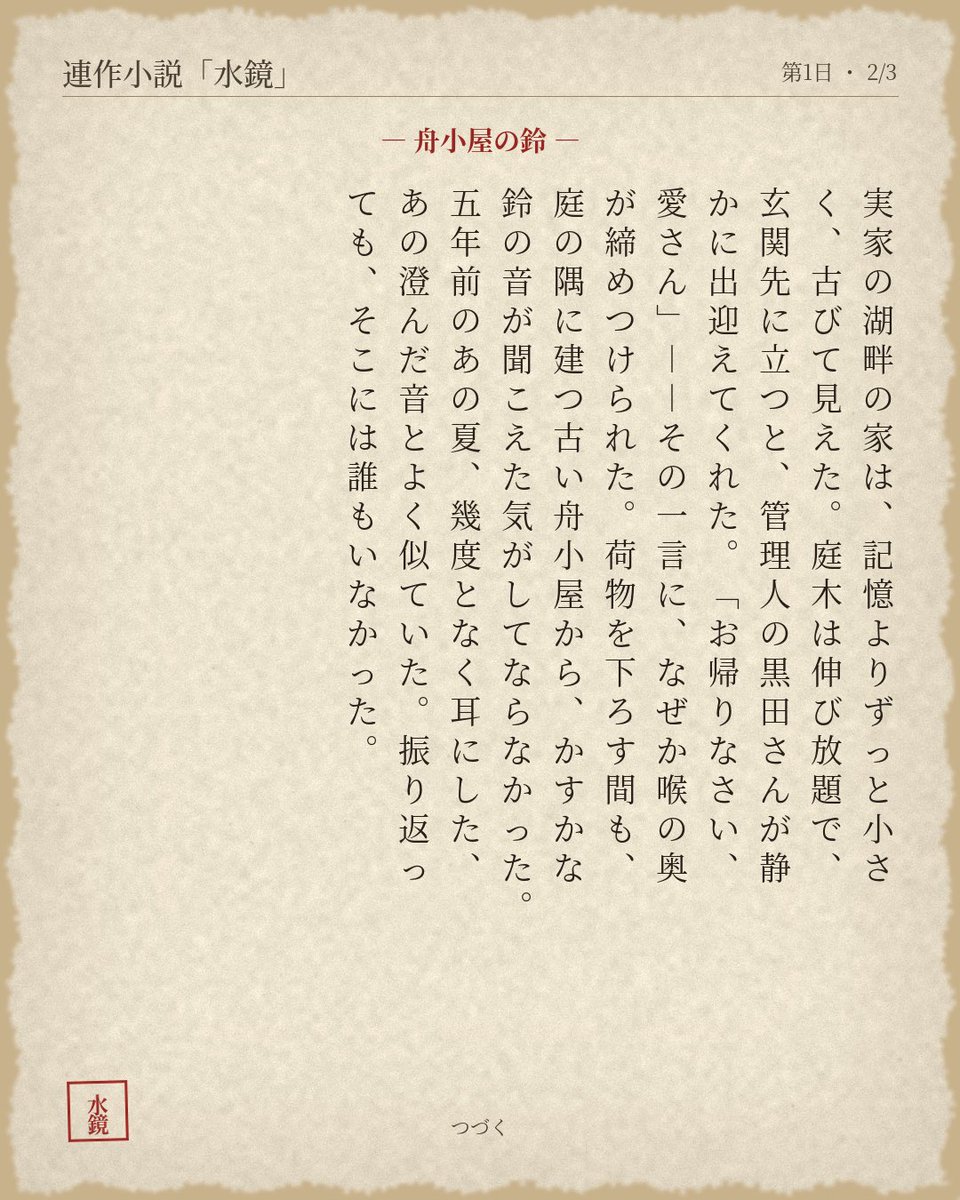 連作小説「水鏡」
第1日 ・ 2/3
— 舟小屋の鈴 —
実家の湖畔の家は、記憶よりずっと小さ
く、古びて見えた。庭木は伸び放題で、
玄関先に立つと、管理人の黒田さんが静
かに出迎えてくれた。「お帰りなさい、
愛さん」——その一言に、なぜか喉の奥
が締めつけられた。荷物を下ろす間も、
庭の隅に建つ古い舟小屋から、かすかな
鈴の音が聞こえた気がしてならなかった。
五年前のあの夏、幾度となく耳にした、
あの澄んだ音とよく似ていた。振り返っ
ても、そこには誰もいなかった。
つづく
水鏡